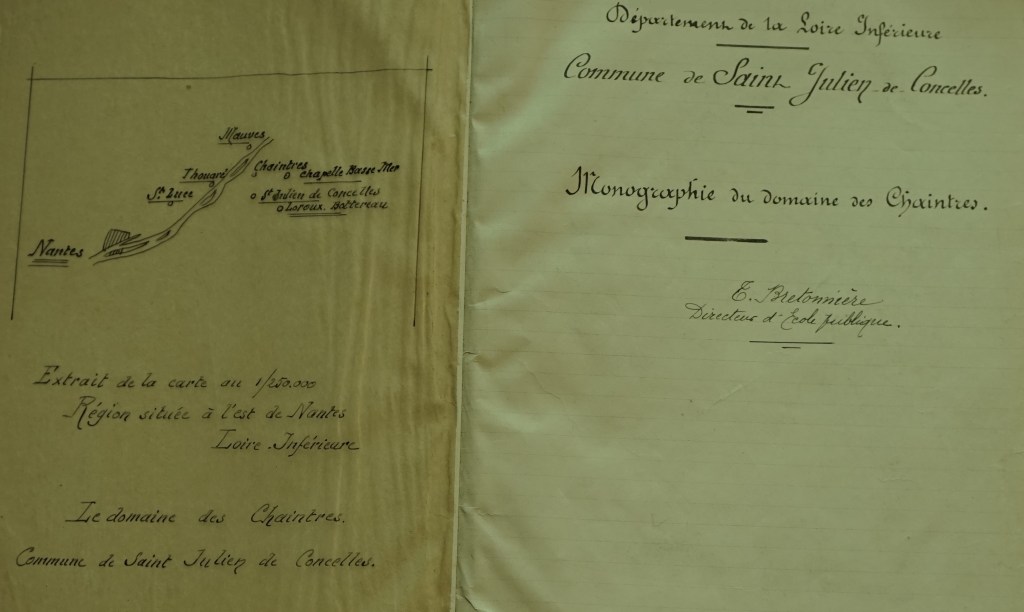 Mauves
Chaintres
Chapelle Basse Mer
Thouaré
Ste Luce
St Julien de Concelles
Loroux Bottereau
Nantes
Extrait de la carte au 1/250.000
Région située à l'est de Nantes
Loire-Inférieure
Le domaine des Chaintres.
Commune de Saint Julien de Concelles.
Département de la Loire Inférieure
Commune de Saint Julien-de-Concelles.
Monographie du domaine des Chaintres.
E. Bretonnière
Directeur d'École publique.